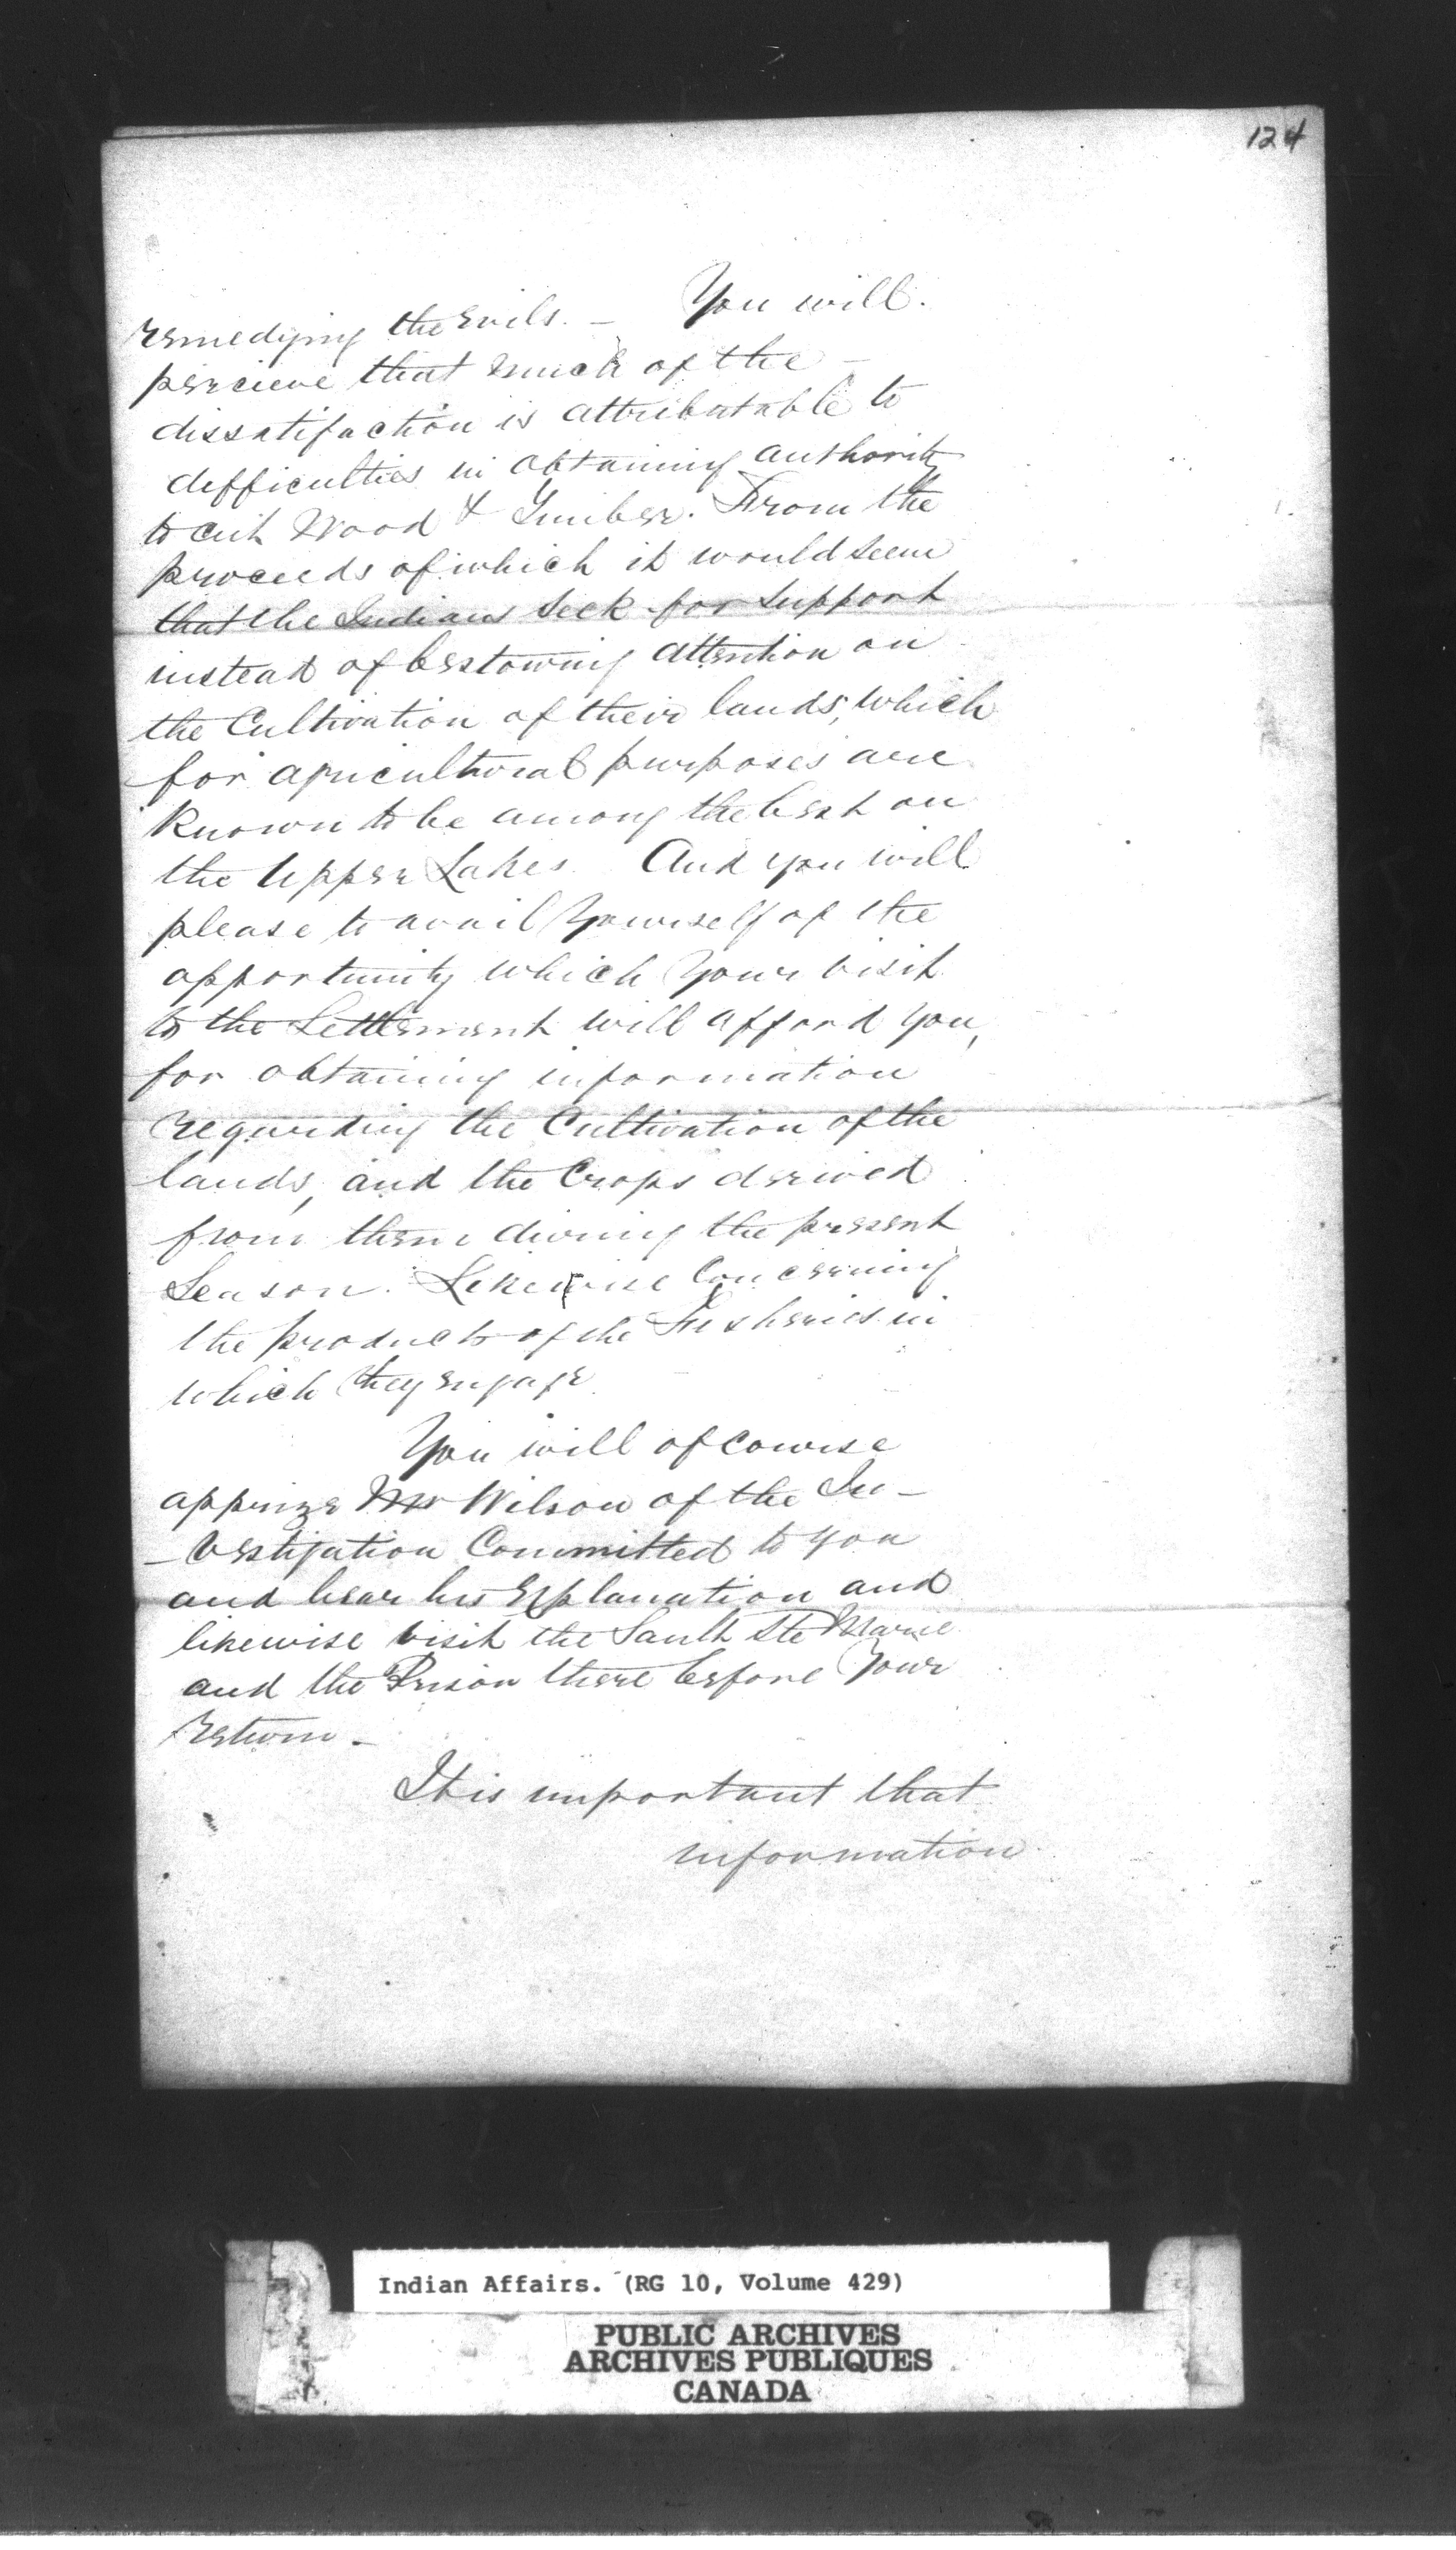 124
remedying the evils. – You will
percieve that much of the –
dissatifaction is attributable to
difficulties in obtaining authority
to cut Wood & Timber. From the
proceeds of which it would seem
that the Indians seek for support
instead of bestowing attention on
the Cultivation of their lands, which
for agricultural purposes are
known to be among the best on
the Upper Lakes. And you will
please to avail yourself of the
opportunity which your visit
to the Settlement will afford you,
for obtaining information
regarding the Cultivation of the
lands, and the Crops derived
from them during the present
Season. Likewise Concerning
the products of the Fisheries in
which they engage
You will of course
apprize Mr Wilson of the In–
–vestigation Committed to you
and hear his Explanation and
likewise visit the Sault Ste Marie
and the Prison there before your
return –
It is important that
information
Indian Affairs. (RG 10, Volume 429)
PUBLIC ARCHIVES
ARCHIVES PUBLIQUES
CANADA